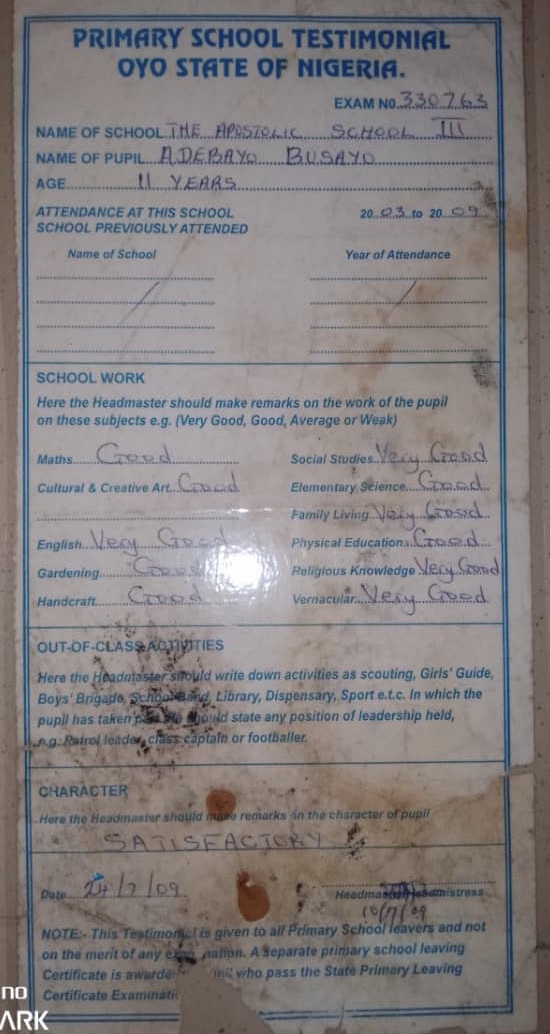 PRIMARY SCHOOL TESTIMONIAL
OYO STATE OF NIGERIA.
EXAM NO. 330763
NAME OF SCHOOL THE APOSTOLIC SCHOOL III
NAME OF PUPIL ADEBAYO BUSAYO
AGE 11 YEARS
ATTENDANCE AT THIS SCHOOL 20 03 to 20 09
SCHOOL PREVIOUSLY ATTENDED
Name of School Year of Attendance
SCHOOL WORK
Here the Headmaster should make remarks on the work of the pupil
on these subjects e.g. (Very Good, Good, Average or Weak)
Maths Good Social Studies Very Good
Cultural & Creative Art Good Elementary Science Good
Family Living Very Good
English Very Good Physical Education Good
Gardening Good Religious Knowledge Very Good
Handcraft Good Vernacular Very Good
OUT-OF-CLASS ACTIVITIES
Here the Headmaster should write down activities as scouting, Girls' Guide,
Boys' Brigade, School Band, Library, Dispensary, Sport e.t.c. In which the
pupil has taken should state any position of leadership held,
e.g. Patrol leader, class captain or footballer.
CHARACTER
Here the Headmaster should make remarks on the character of pupil
SATISFACTORY
Date 24/7/09 Headmaster/Headmistress
10/7/09
NOTE:- This Testimonial is given to all Primary School leavers and not
on the merit of any nation. A separate primary school leaving
Certificate is awarded who pass the State Primary Leaving
Certificate
no
ARK